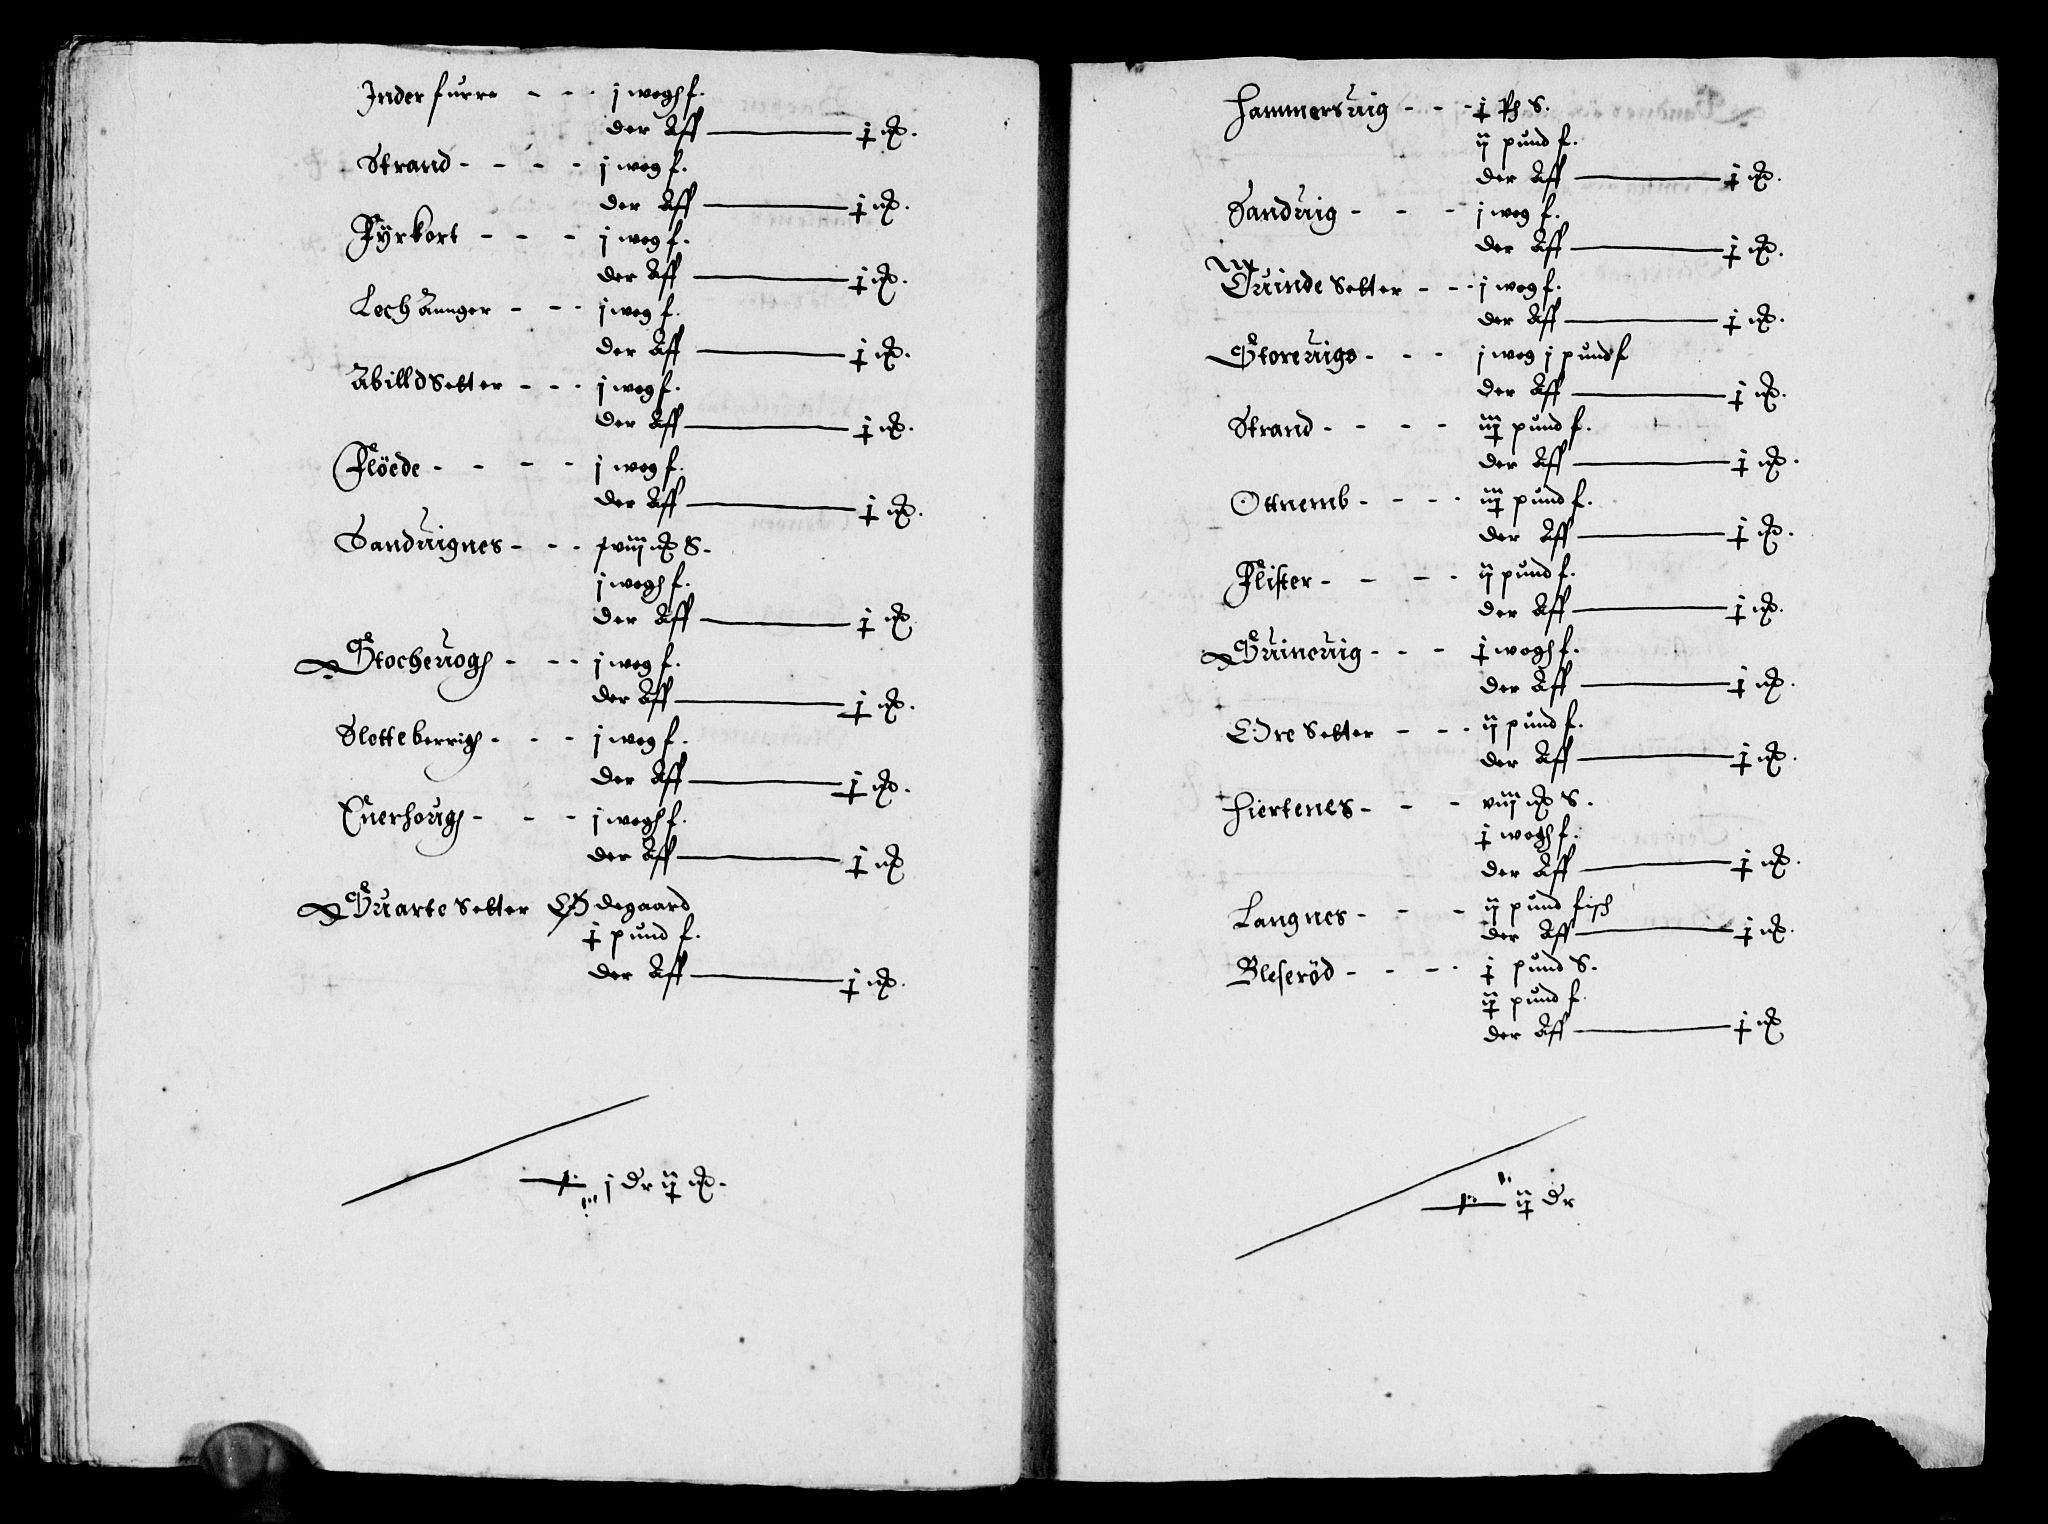 Inder furre - - - j wogh f.
der Aff ——— j mk.
Strand - - - - j wog f.
der Aff ——— j mk.
Fyrkort - - - j wog f.
der Aff ——— j mk.
Lech Aunger - - - j wog f.
der Aff ——— j mk.
Abilld Setter - - - j wog f.
der Aff ——— j mk.
Flöede - - - - j wog f.
der Aff ——— j mk.
Sanduignes - - - mk S.
j wogh f.
der Aff ——— j mk
Stocheuogh - - - j wog f.
der Aff ——— j mk.
Slotteberrigh - - - j wog f.
der Aff ——— j mk.
Euerhough - - - j wogh f.
der Aff ——— j mk
Suarte Setter Ødegaard
j pund f.
der Aff ——— j mk.
j dr ij mk.
Hammersuig - - - j ph S.
ij pund f.
der Aff ——— j mk.
Sanduig - - - j wog f.
der Aff ——— j mk.
Quinde Setter - - - j wog f.
der Aff ——— j mk.
Storeuigo - - - j wog j pund f
der Aff ——— j mk.
Strand - - - - iij pund f.
der Aff ——— j mk.
Ottnemb - - - - iij pund f.
der Aff ——— j mk.
Flister - - - - ij pund f.
der Aff ——— j mk.
Suineuig - - - j wogh f.
der Aff ——— j mk.
Øre Setter - - - ij pund f.
der Aff ——— j mk.
Hiertenes - - - viij mk S.
j wogh f.
der Aff ——— j mk.
Langnes - - - ij pund fisch
der Aff ——— j mk.
Bleserød - - - - j pund S.
ij pund f.
der Aff ——— j mk
ij dr